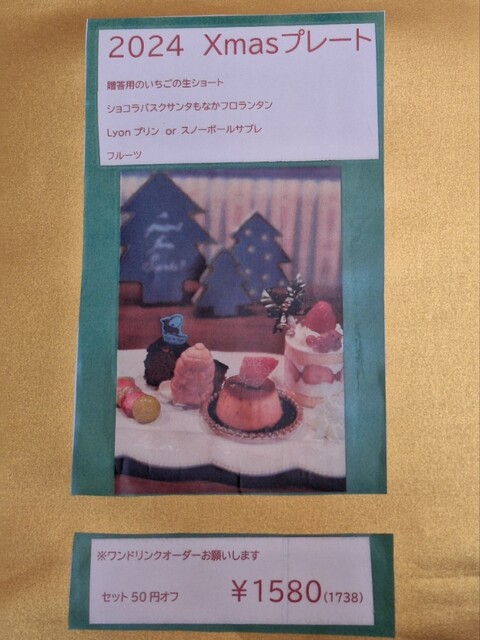 2024 Xmasプレート
贈答用のいちごの生ショート
ショコラバスクサンタもなかフロランタン
Lyonプリン or スノーボールサブレ
フルーツ
a
present
from
Santa!
※ワンドリンクオーダーお願いします
セット50円オフ ¥1580(1738)